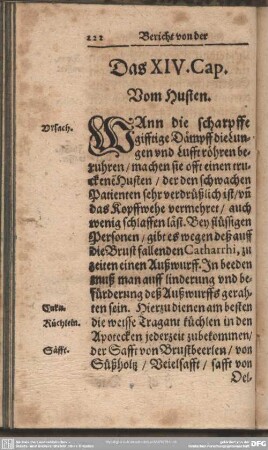 222 Bericht von der
Das XIV. Cap.
Vom Husten.
Vrsach.
WAnn die scharpffe
gifftige Dämpff die Lun-
gen vnd Lufft röhren be-
ruhren / machen sie offt einen tru-
ckenē Husten / der den schwachen
Patienten sehr verdrüßlich ist / vñ
das Kopffwehe vermehret / auch
wenig schlaffen läst. Bey flüssigen
Personen / gibt es wegen deß auff
die Brust fallenden Catharrhi, zu
zeiten einen Außwurff. In beeden
muß man auff linderung vnd be-
fürderung deß Außwurffs gerah-
ten sein. Hierzu dienen am besten
die weisse Tragant küchlen in den
Apotecken jederzeit zubekommen /
der Safft von Brustbeerlen / von
Süßholtz / Veielsafft / safft von
Oel-
Küchlein.
Säfft.